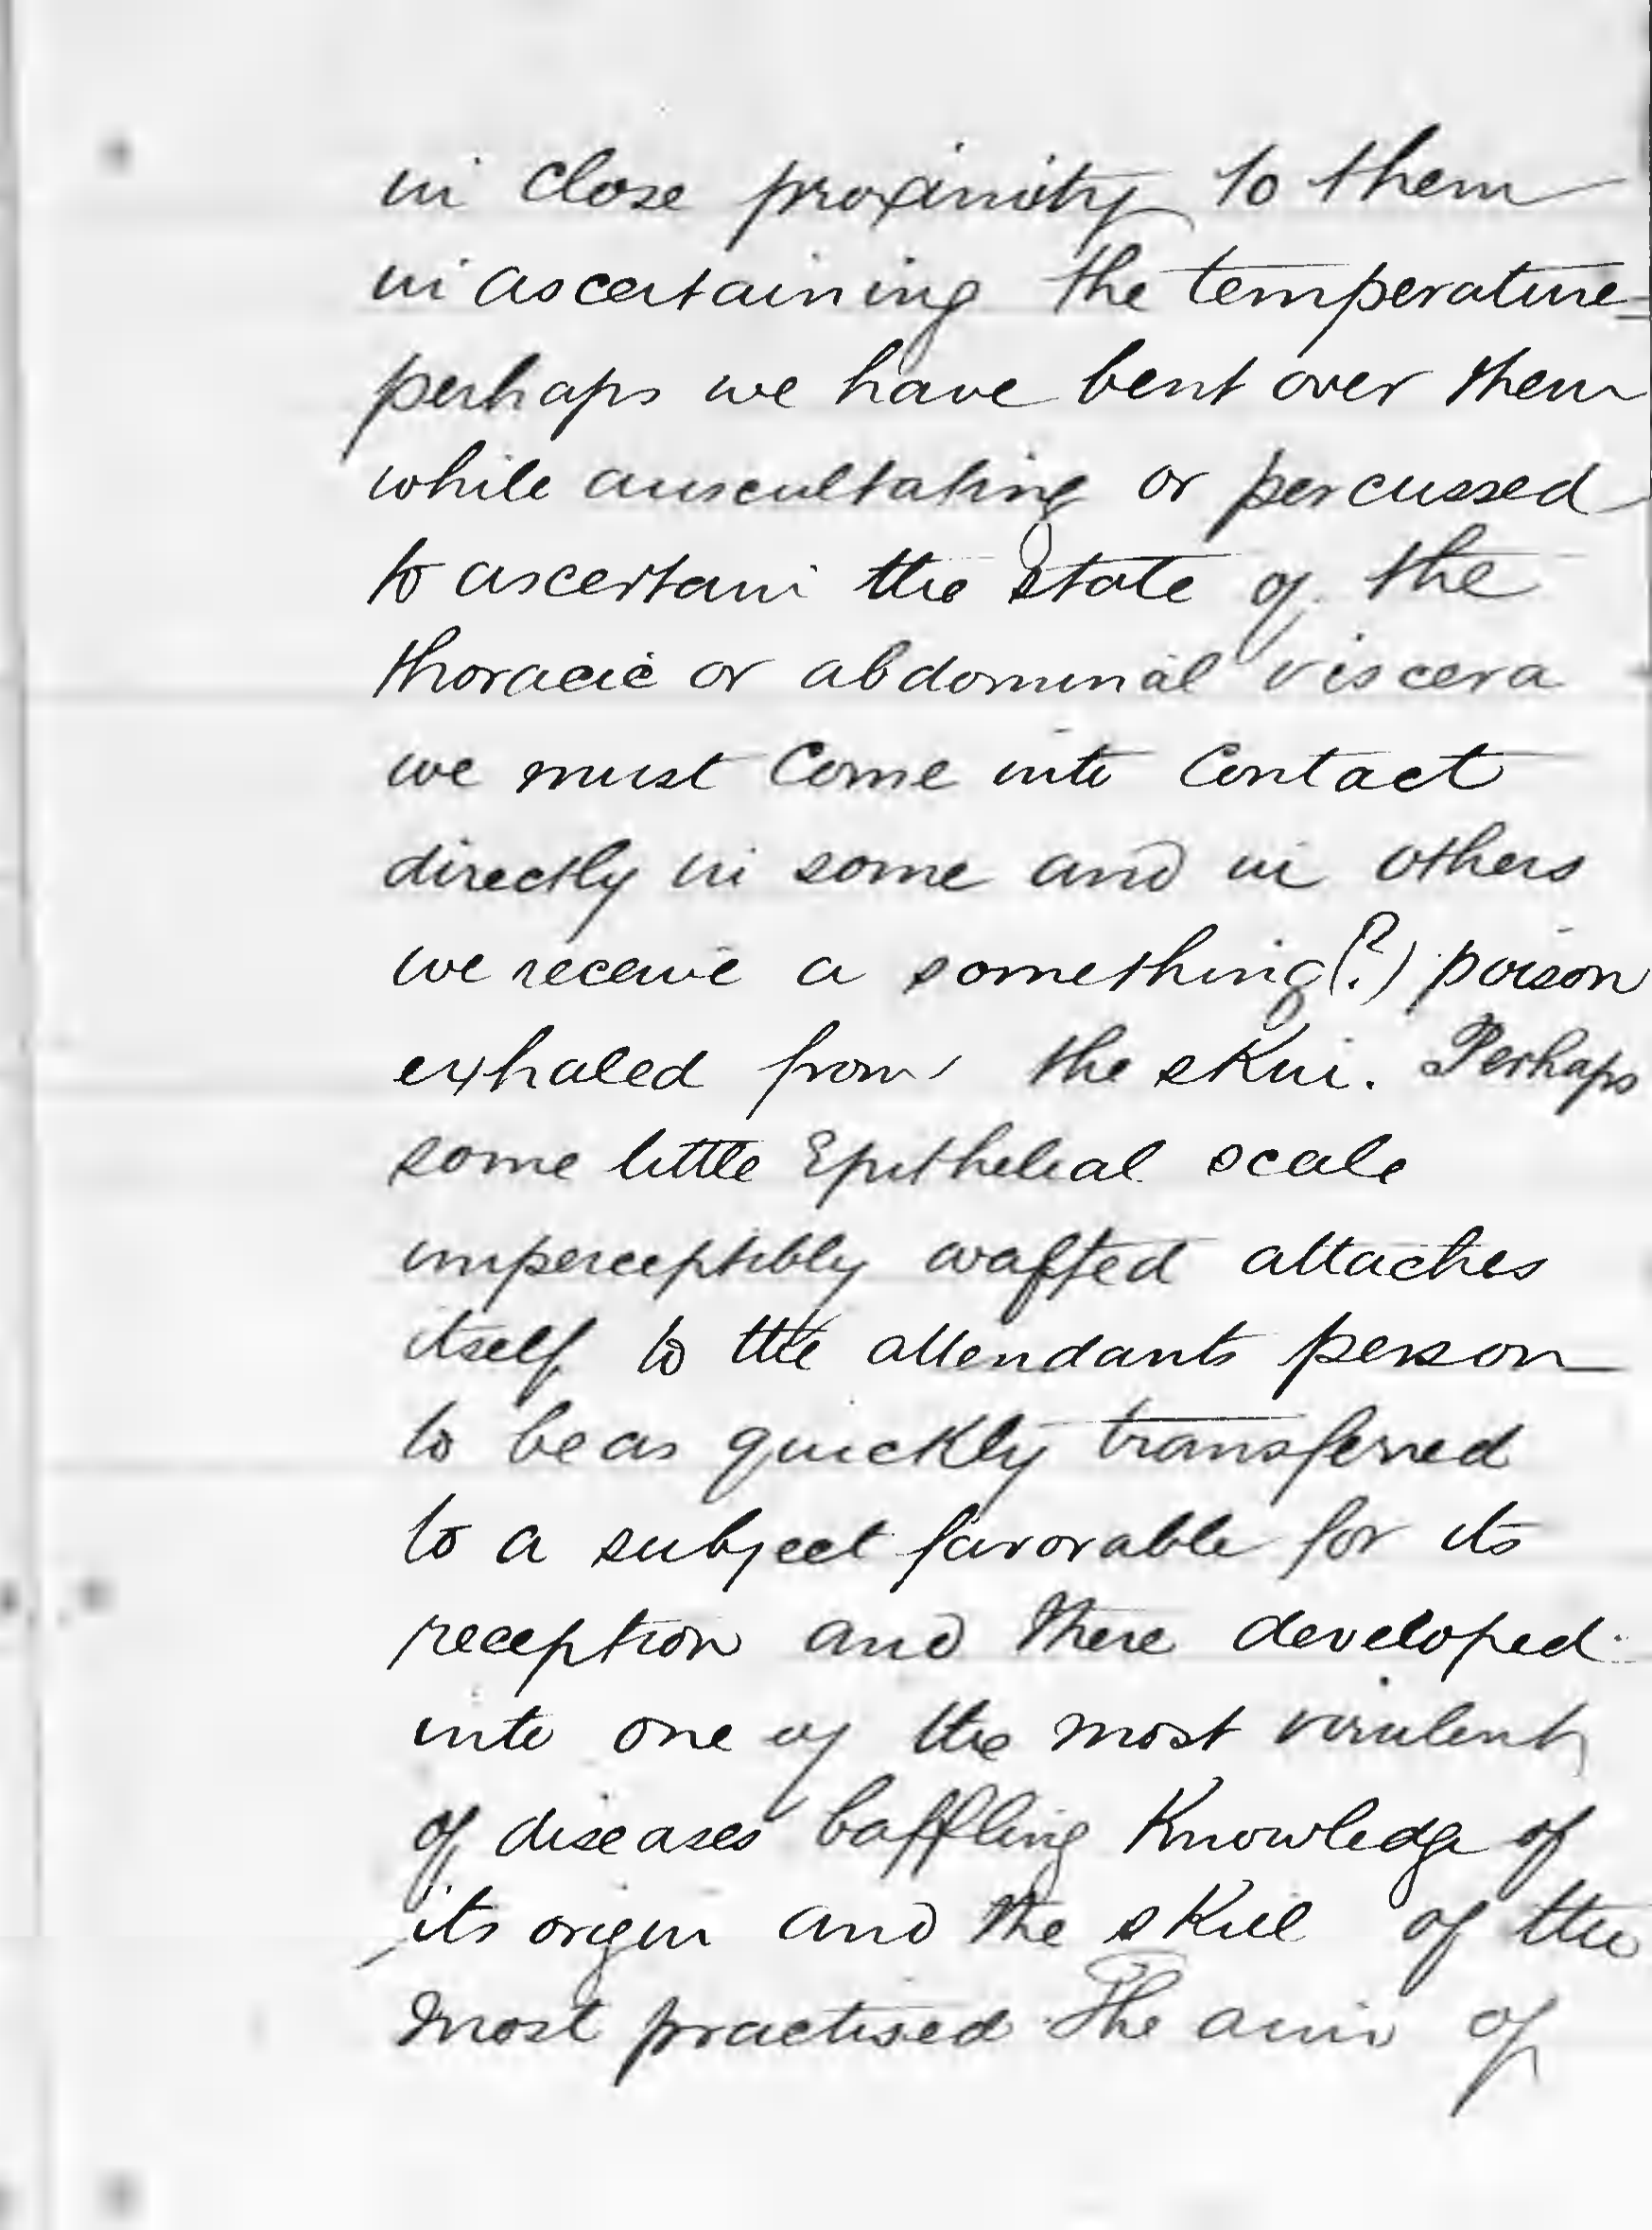 in close proximity to them
in ascertaining the temperature =
perhaps we have bent over them
while auscultating or percussed
to ascertain the state of the
thoracic or abdominal viscera
we must Come into Contact
directly in some and in others
we receive a something (?) poison
exhaled from the skin. Perhaps
some little Epithelial scale
imperceptibly wafted attaches
itself to the attendants person
to be as quickly transferred
to a subject favorable for its
reception and there developed
into one of the most virulent
of diseases baffling Knowledge of
its origin and the skill of the
most practised The aim of